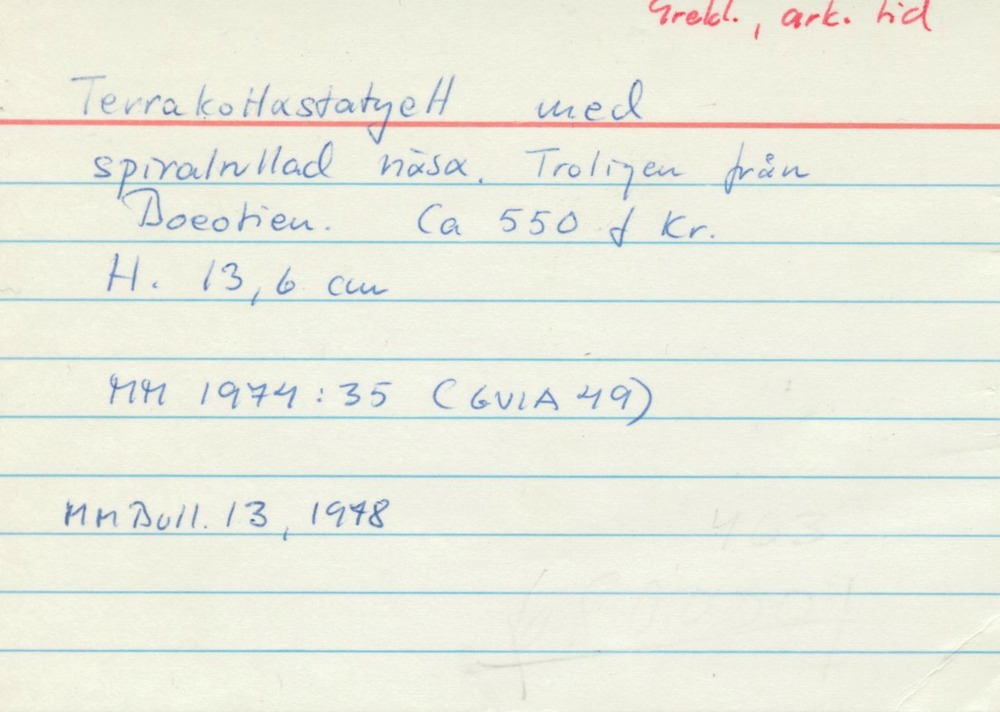 Grekl., ark. tid
Terrakottastatyett med
spiralrullad näsa. Troligen från
Boeotien. Ca 550 f Kr.
H. 13,6 cm
MM 1974:35 (GVIA 49)
MM Bull. 13, 1978
463